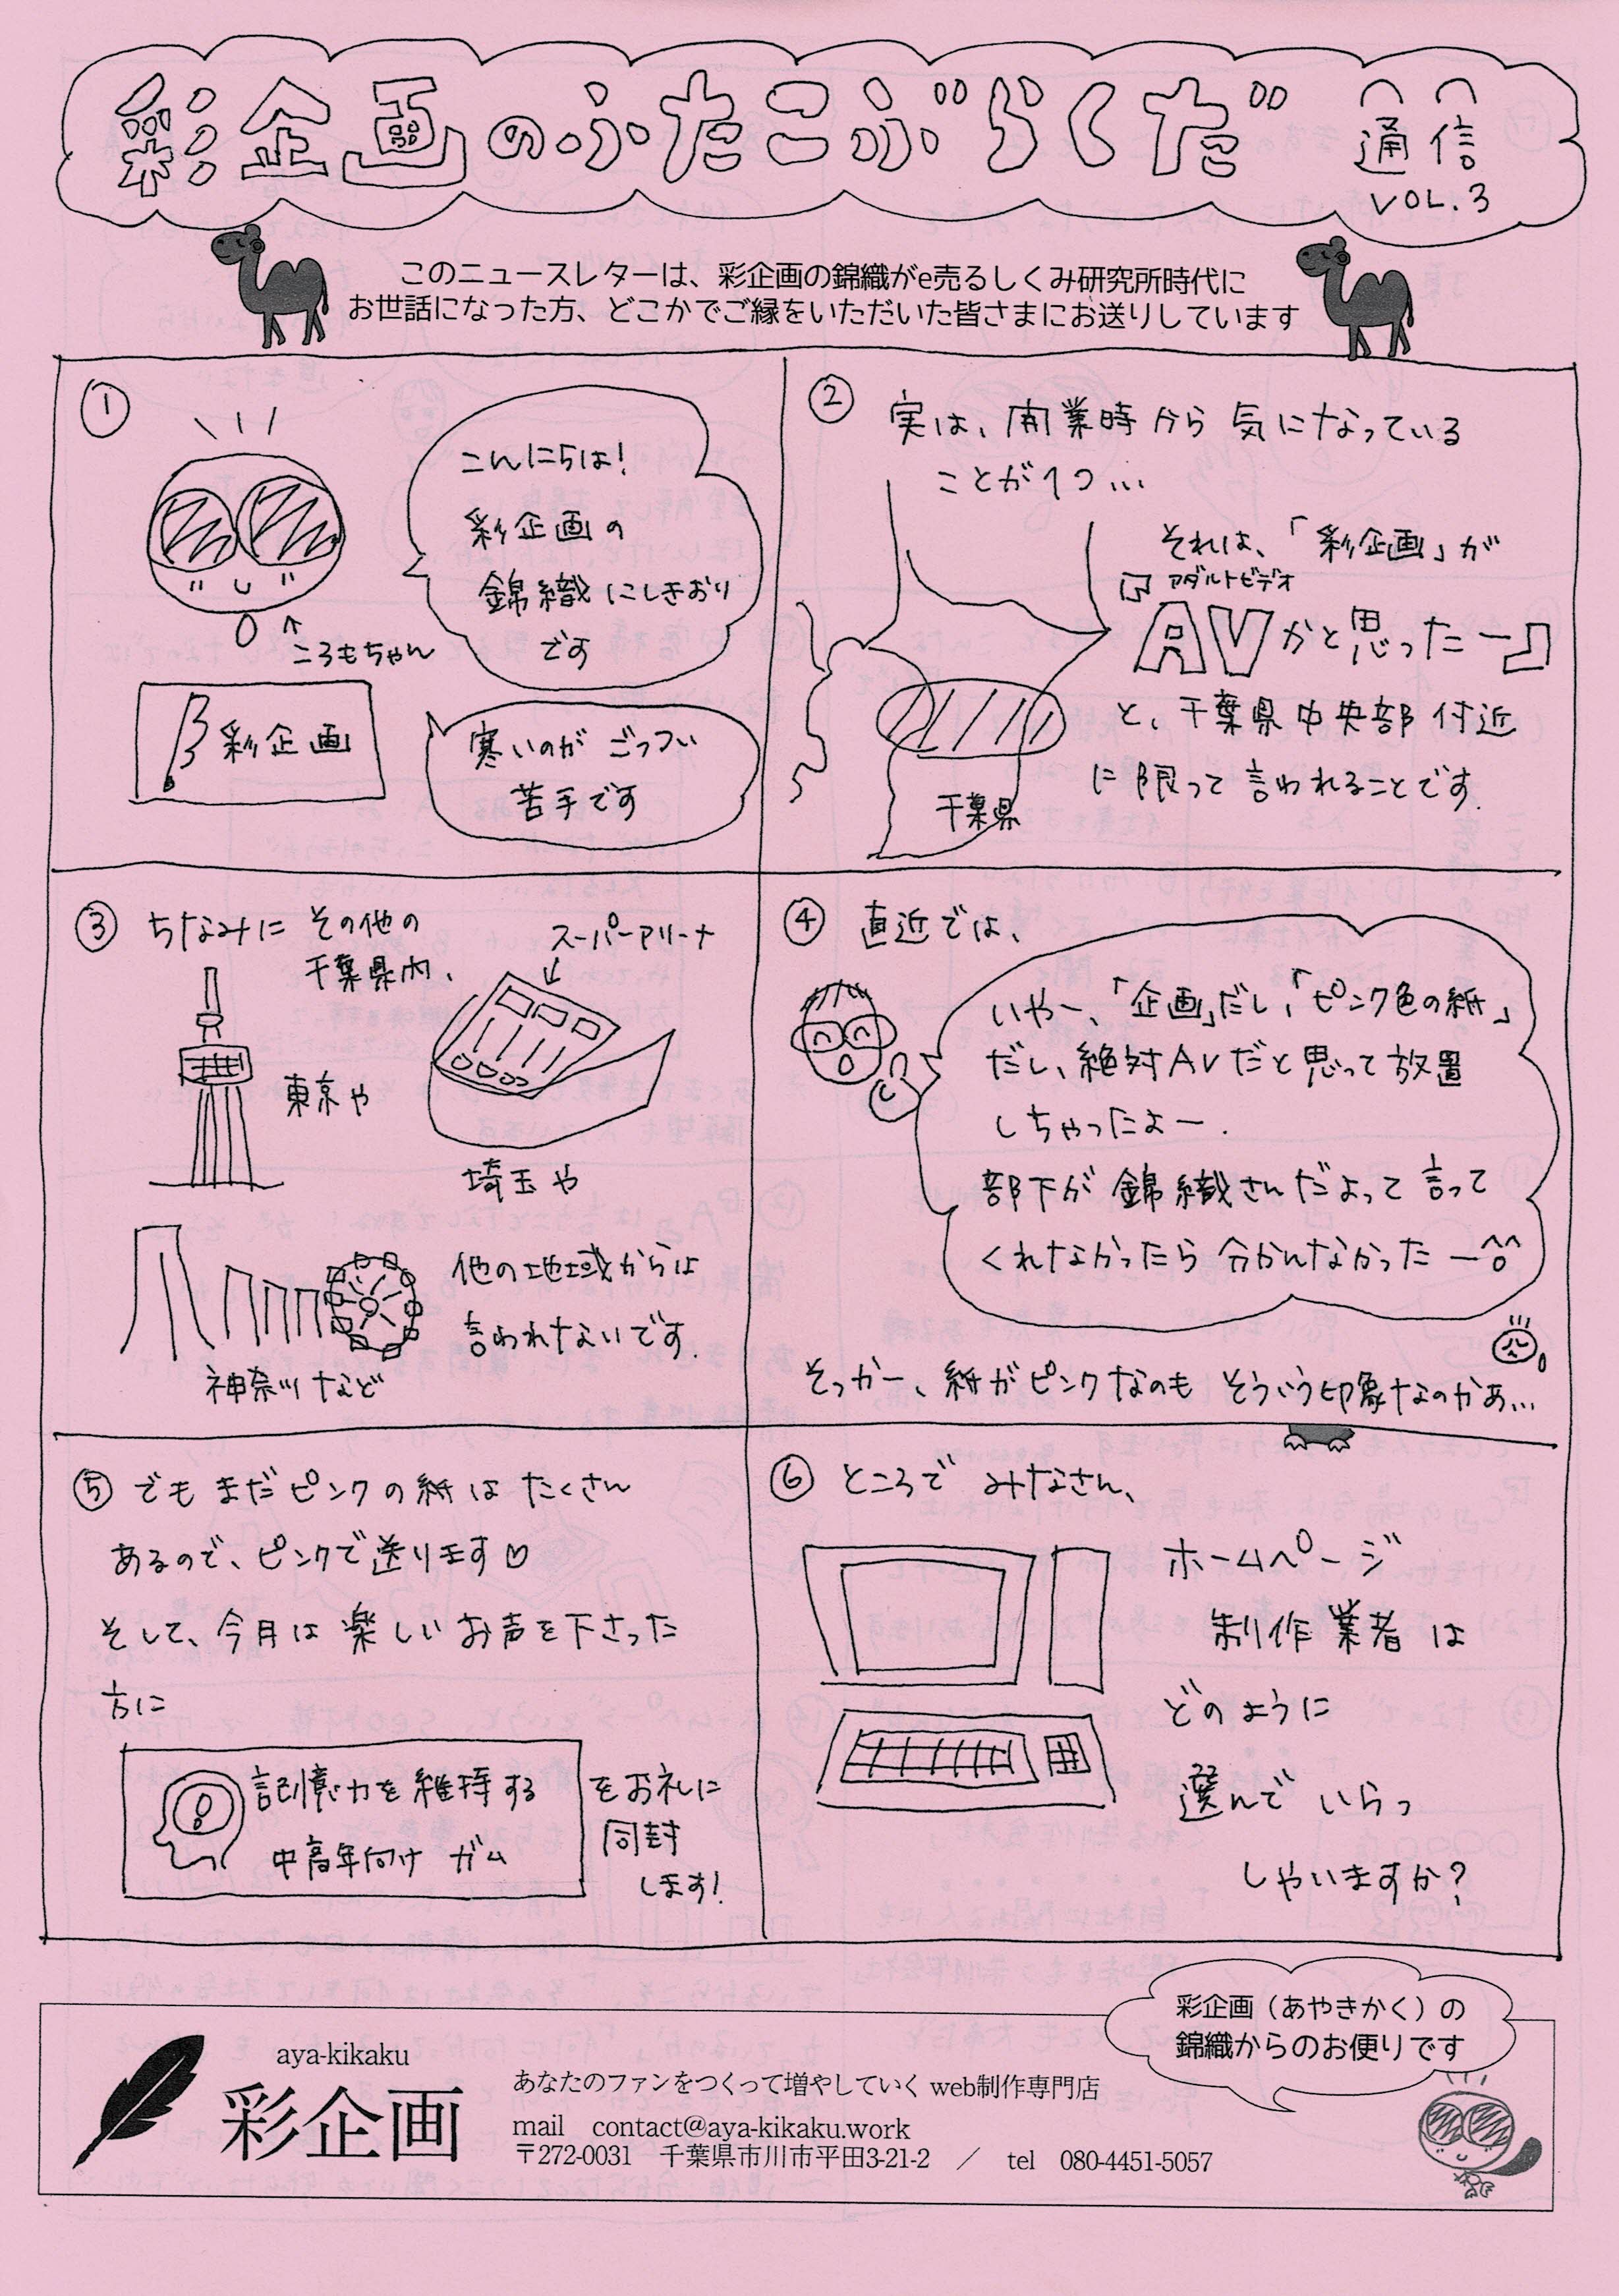 彩企画のふたこぶらくだ 通信
VOL.3
このニュースレターは、彩企画の錦織がe売るしくみ研究所時代に
お世話になった方、どこかでご縁をいただいた皆さまにお送りしています
①
こんにちは!
彩企画の
錦織 にしきおり
です
ころもちゃん
彩企画
寒いのが ごっつい
苦手です
② 実は、開業時から 気になっている
ことが1つ...
それは、「彩企画」が
アダルトビデオ
『AVかと思ったー』
と、千葉県中央部付近
に限って言われることです.
千葉県
③ ちなみに その他の
千葉県内、
スーパーアリーナ
東京や
埼玉や
他の地域からは
言われないです.
神奈川など
④ 直近では、
いやー、「企画」だし、「ピンク色の紙」
だし、絶対AVだと思って放置
しちゃったよー.
部下が錦織さんだよって言って
くれなかったら 分かんなかったー^^
そっかー、紙がピンクなのも そういう印象なのかぁ...
⑤ でも まだピンクの紙は たくさん
あるので、ピンクで送ります♡
そして、今月は 楽しい お声を下さった
方に
記憶力を維持する
中高年向け ガム
をお礼に
同封
します!
⑥ ところで みなさん、
ホームページ
制作業者は
どのように
選んで いらっ
しゃいますか?
彩企画(あやきかく)の
錦織からのお便りです
aya-kikaku
彩企画
あなたのファンをつくって増やしていく web制作専門店
mail contact@aya-kikaku.work
〒272-0031 千葉県市川市平田3-21-2 / tel 080-4451-5057